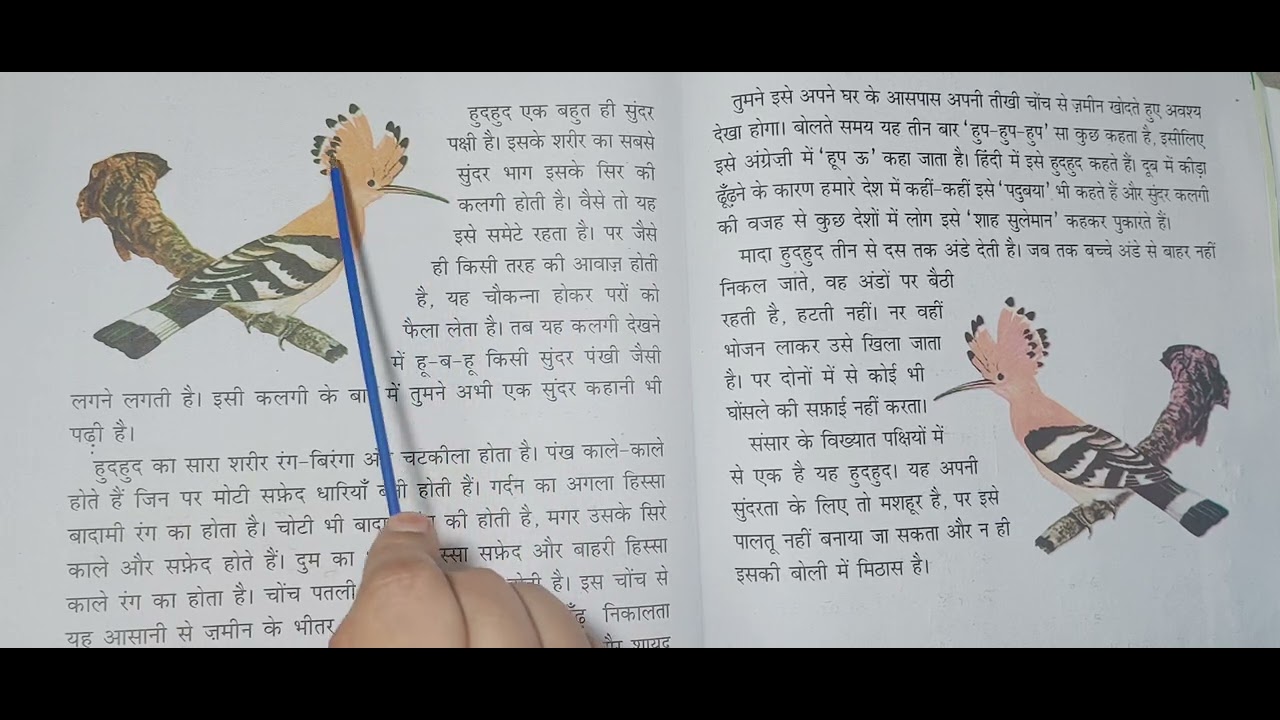 हुदहुद एक बहुत ही सुंदर
पक्षी है। इसके शरीर का सबसे
सुंदर भाग इसके सिर की
कलगी होती है। वैसे तो यह
इसे समेटे रहता है। पर जैसे
ही किसी तरह की आवाज़ होती
है, यह चौकन्ना होकर परों को
फैला लेता है। तब यह कलगी देखने
में हू-ब-हू किसी सुंदर पंखी जैसी
लगने लगती है। इसी कलगी के में तुमने अभी एक सुंदर कहानी भी
पढ़ी है।
हुदहुद का सारा शरीर रंग-बिरंगा और चटकीला होता है। पंख काले-काले
होते हैं जिन पर मोटी सफ़ेद धारियाँ होती हैं। गर्दन का अगला हिस्सा
बादामी रंग का होता है। चोटी भी की होती है, मगर उसके सिरे
काले और सफ़ेद होते हैं। दुम का सफ़ेद और बाहरी हिस्सा
काले रंग का होता है। चोंच पतली है। इस चोंच से
यह आसानी से ज़मीन के भीतर निकालता
शायद
तुमने इसे अपने घर के आसपास अपनी तीखी चोंच से ज़मीन खोदते हुए अवश्य
देखा होगा। बोलते समय यह तीन बार 'हुप-हुप-हुप' सा कुछ कहता है, इसीलिए
इसे अंग्रेजी में 'हूप ऊ' कहा जाता है। हिंदी में इसे हुदहुद कहते हैं। दूब में कीड़ा
ढूँढ़ने के कारण हमारे देश में कहीं-कहीं इसे 'पदुबया' भी कहते हैं और सुंदर कलगी
की वजह से कुछ देशों में लोग इसे 'शाह सुलेमान' कहकर पुकारते हैं।
मादा हुदहुद तीन से दस तक अंडे देती है। जब तक बच्चे अंडे से बाहर नहीं
निकल जाते, वह अंडों पर बैठी
रहती है, हटती नहीं। नर वहीं
भोजन लाकर उसे खिला जाता
है। पर दोनों में से कोई भी
घोंसले की सफ़ाई नहीं करता।
संसार के विख्यात पक्षियों में
से एक है यह हुदहुद। यह अपनी
सुंदरता के लिए तो मशहूर है, पर इसे
पालतू नहीं बनाया जा सकता और न ही
इसकी बोली में मिठास है।